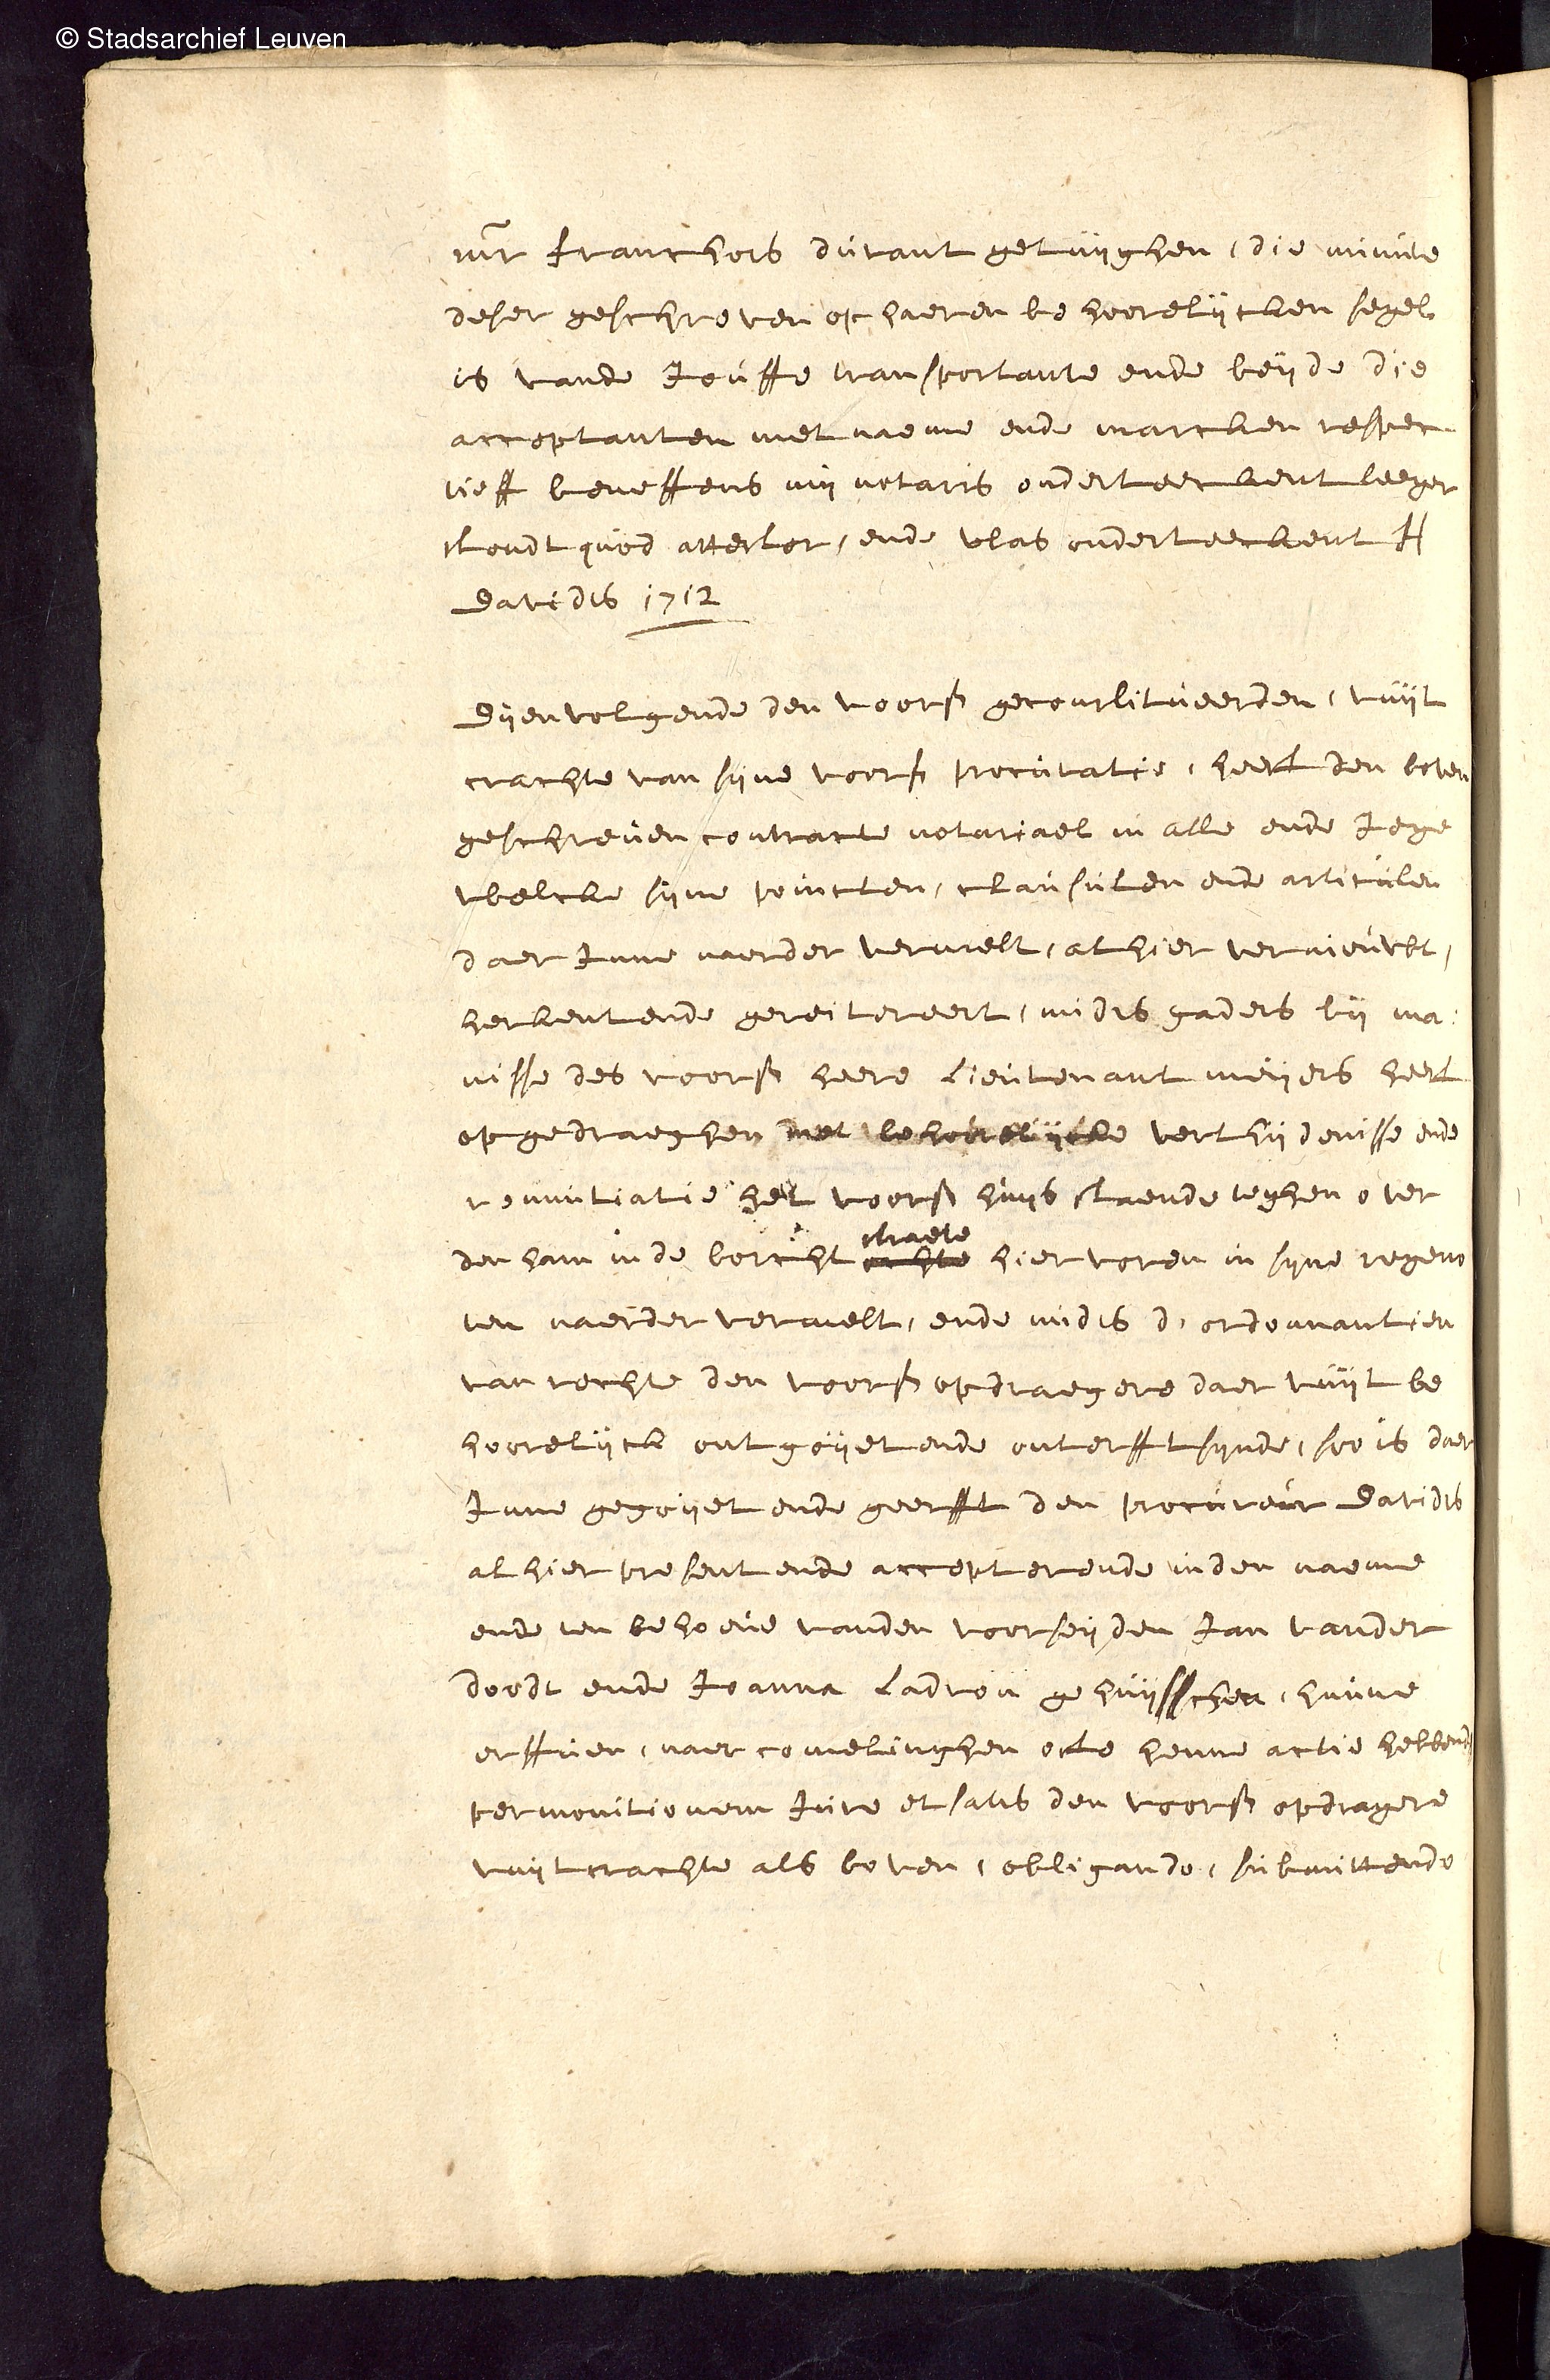 © Stadsarchief Leuven
mr franchois durant getuijghen, die minute
deser geschreven op haeren behoorelijcken segel
is vande Jouffe transportante ende beijde die
acceptanten met naeme ende marcken respec
tieff beneffens mij notaris onderteeckent leeger
stondt quod attestor, ende was onderteeckent H
Davidts 1712
Dijenvolgende den voors geconstitueerden, vuijt
crachte van sijne voors procuratie, heeft den boven
geschreven contracte notariael in alle ende Jege
welcke sijne poincten, clausulen ende articulen
daer Inne naerder vermelt, alhier vernieuwt,
herkent ende gereitereert, midts gaders bij ma:
nisse des voors heere Lieutenant meijers heeft
opgedraeghen met behoorelijcke verthijdenisse ende
renuntiatie het voors huijs staende teghen over
den ham in de borcht straete hier voren in sijne regeno
ten naerder vermelt, ende midts d'ordonnantien
van rechte den voors opdraegere daer vuijt be
hoorelijck ontgoijet ende onterft sijnde, soo is daer
Inne gegoijet ende geerft den procureur Davidts
alhier present ende accepterende inden naeme
ende ten behoeve vanden voorseijden Jan vander
doodt ende Joanna Ladron gehuijsschen, hunne
erffven, naercomelinghen ofte henne actie hebbende
per monitionem Jure et satis den voors opdragere
vuijt crachte als boven, obligando, submittendo